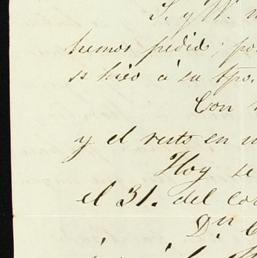 S. y W.
hemos pedido; po
se hizo á su tpo.
Con
y el resto en
Hoy se
el 31. del co
Dn